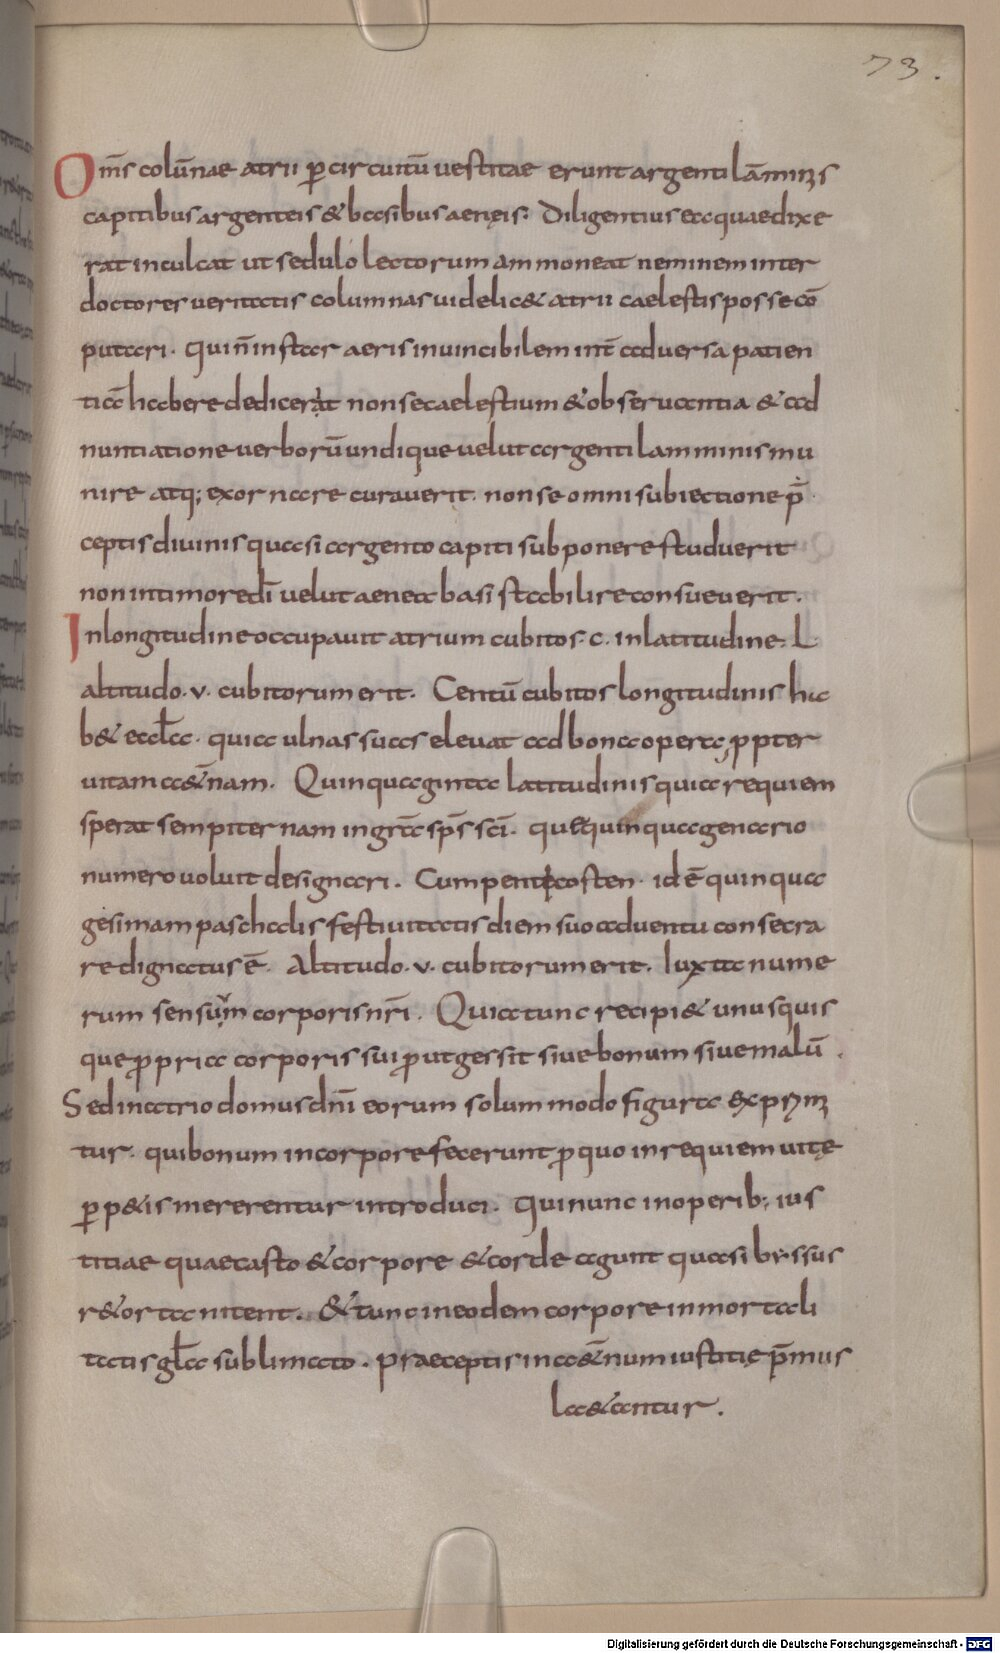 73.
Om̄s colūnae atrii ꝑ circuitū vestitae erunt argenti lāminis
capitibus argenteis & basibus aeneis. Diligentius ea quae dixe
rat inculcat ut sedulo lectorum ammoneat neminem inter
doctores veritatis columnas videlic& atrii caelestis posse cō
putari. Qui n̄ instar aeris invincibilem int̄ adversa patien
tiā habere dedicerat non se caelestium & observantia & ad
nuntiatione verborū undique velut argenti lamminis mu
nire atq; exornare curaverit. non se omni subiectione p̄
ceptis divinis quasi argento capiti subponere studverit
non in timore dī velut aenea basi stabilire consueverit.
In longitudine occupavit atrium cubitos. c. in latitudine. L
altitudo. v. cubitorum erit. Centū cubitos longitudinis ha
b& eccl̄a. quia ulnas suas elevat ad bona opera ꝓpter
vitam a&̄nam. Quinquaginta latitudinis quia requiem
sperat sempiternam in gr̄a sp̄s sc̄i. qui & quinquagenario
numero voluit designari. Cum pentecosten. id ē quinqua
gesimam paschalis festivitatis diem suo adventu consecra
re dignatus ē. Altitudo. v. cubitorum erit. Iuxta nume
rum sensuum corporis nr̄i. Quia tunc recipi& unusquis
que ꝓpria corporis sui ꝓut gessit sive bonum sive malū.
Sed in atrio domus dn̄i eorum solummodo figura exprim
tur. qui bonum in corpore fecerunt ꝓ quo in requiem vitę
ꝑp&is mererentur introduci. Qui nunc in operib; ius
titiae quae casto & corpore & corde agunt quasi byssus
r&orta nitent. & tunc in eodem corpore inmortali
tatis gl̄a sublimato. praeceptis in a&̄num iustitię p̄mus
la&antur.
Digitalisierung gefördert durch die Deutsche Forschungsgemeinschaft - DFG